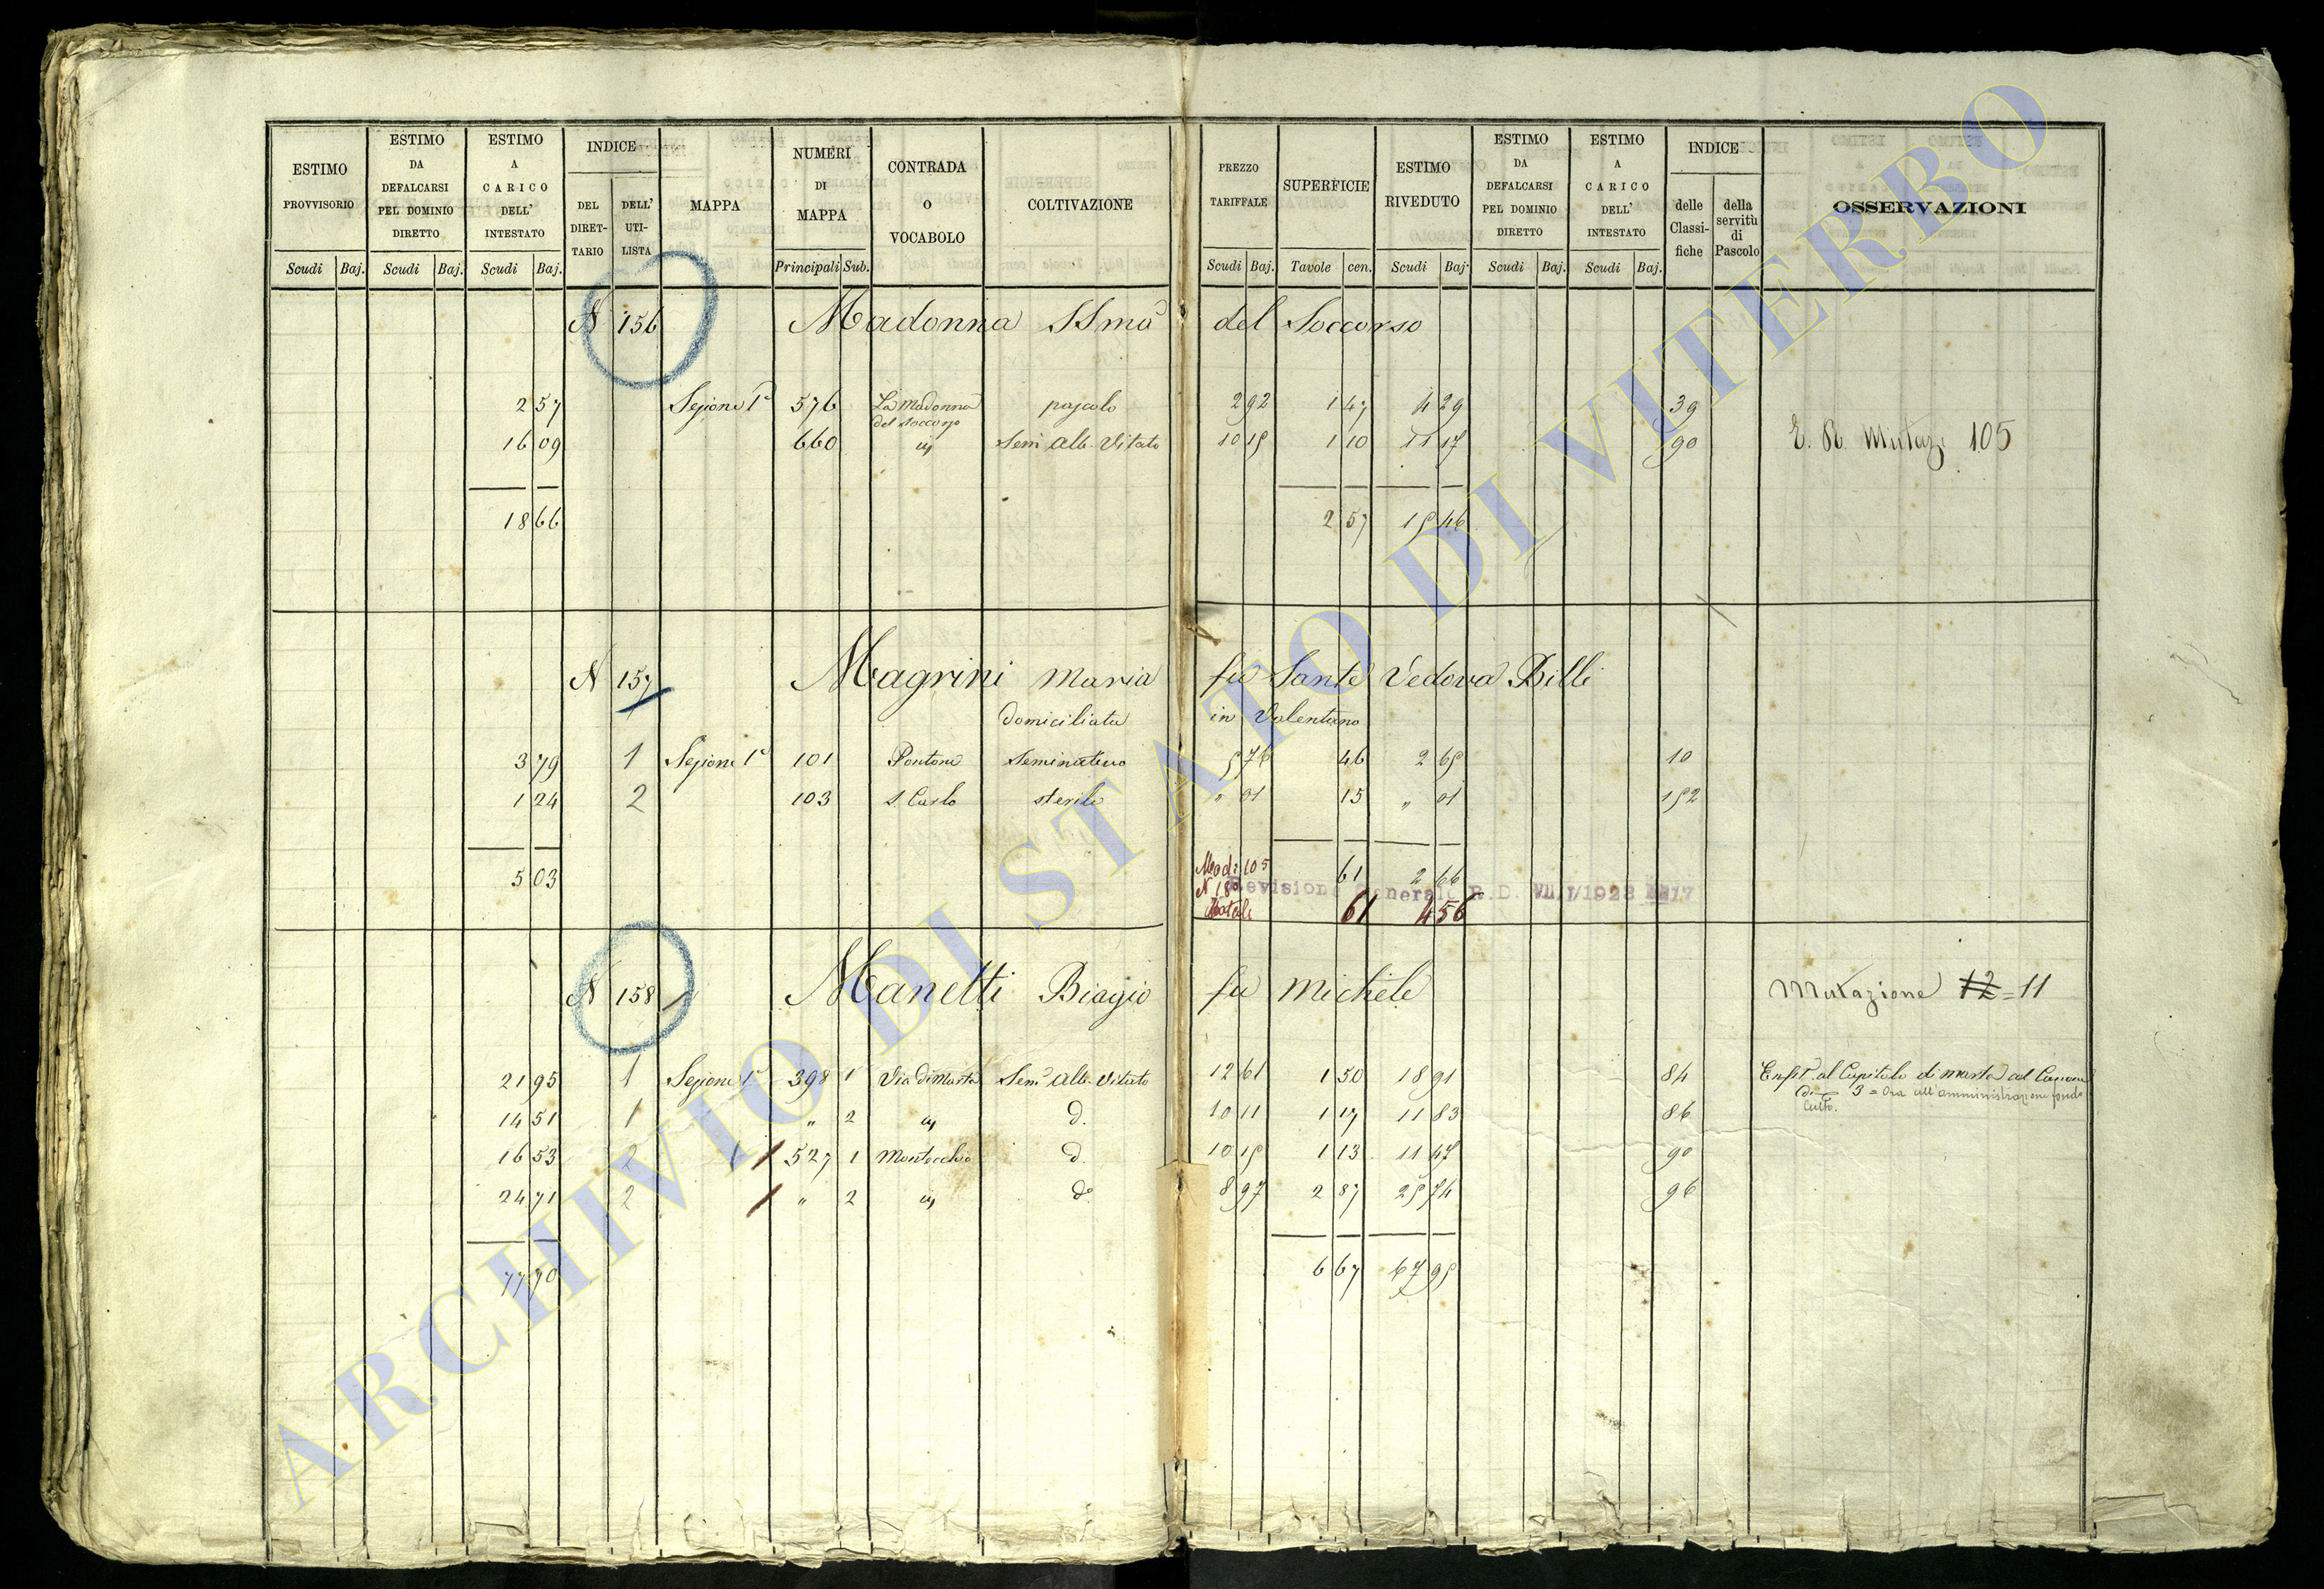 ESTIMO PROVVISORIO
ESTIMO DA DEFALCARSI PEL DOMINIO DIRETTO
ESTIMO A CARICO DELL' INTESTATO
INDICE
DEL DIRET-TARIO
DELL' UTI-LISTA
MAPPA
NUMERI DI MAPPA
CONTRADA O VOCABOLO
COLTIVAZIONE
PREZZO TARIFFALE
SUPERFICIE
ESTIMO RIVEDUTO
ESTIMO DA DEFALCARSI PEL DOMINIO DIRETTO
ESTIMO A CARICO DELL' INTESTATO
INDICE
delle Classi-fiche
della servitù di Pascolo
OSSERVAZIONI
Scudi Baj. Scudi Baj. Scudi Baj. Principali Sub. Scudi Baj. Tavole cen. Scudi Baj. Scudi Baj. Scudi Baj.
N 156 Madonna SSma del Soccorso
2 57 Sezione 1ª 576 La Madonna del Soccorso pascolo 2 92 1 47 4 29 39
16 09 660 Sem Alb. Vitato 10 15 1 10 11 17 90 E. R. Mutaz. 105
18 66 2 57 15 46
N 157 Magrini Maria fu Sante Vedova Billi
domiciliata in Valentano
3 79 1 Sezione 1ª 101 Pontone Seminativo 5 76 46 2 65 10
1 24 2 103 S. Carlo sterile " 01 15 " 01 152
5 03 61 2 66
Mod: 105
Revisione Generale R.D. 1923
Totale 61 4 56
N 158 Manetti Biagio fu Michele Mutazione 12 = 11
21 95 1 Sezione 1ª 398 1 Via di Marta Sem Alb. Vitato 12 61 1 50 18 91 84 Enfit. al Capitolo di Marta al Canone
di 3 = Ora all'amministrazione fondo
Culto.
14 51 1 " 2 d. 10 11 1 17 11 83 86
16 53 2 527 1 Montecchio d. 10 15 1 13 11 47 90
24 71 2 " 2 do 8 97 2 87 25 74 96
77 70 6 67 67 95
ARCHIVIO DI STATO DI VITERBO